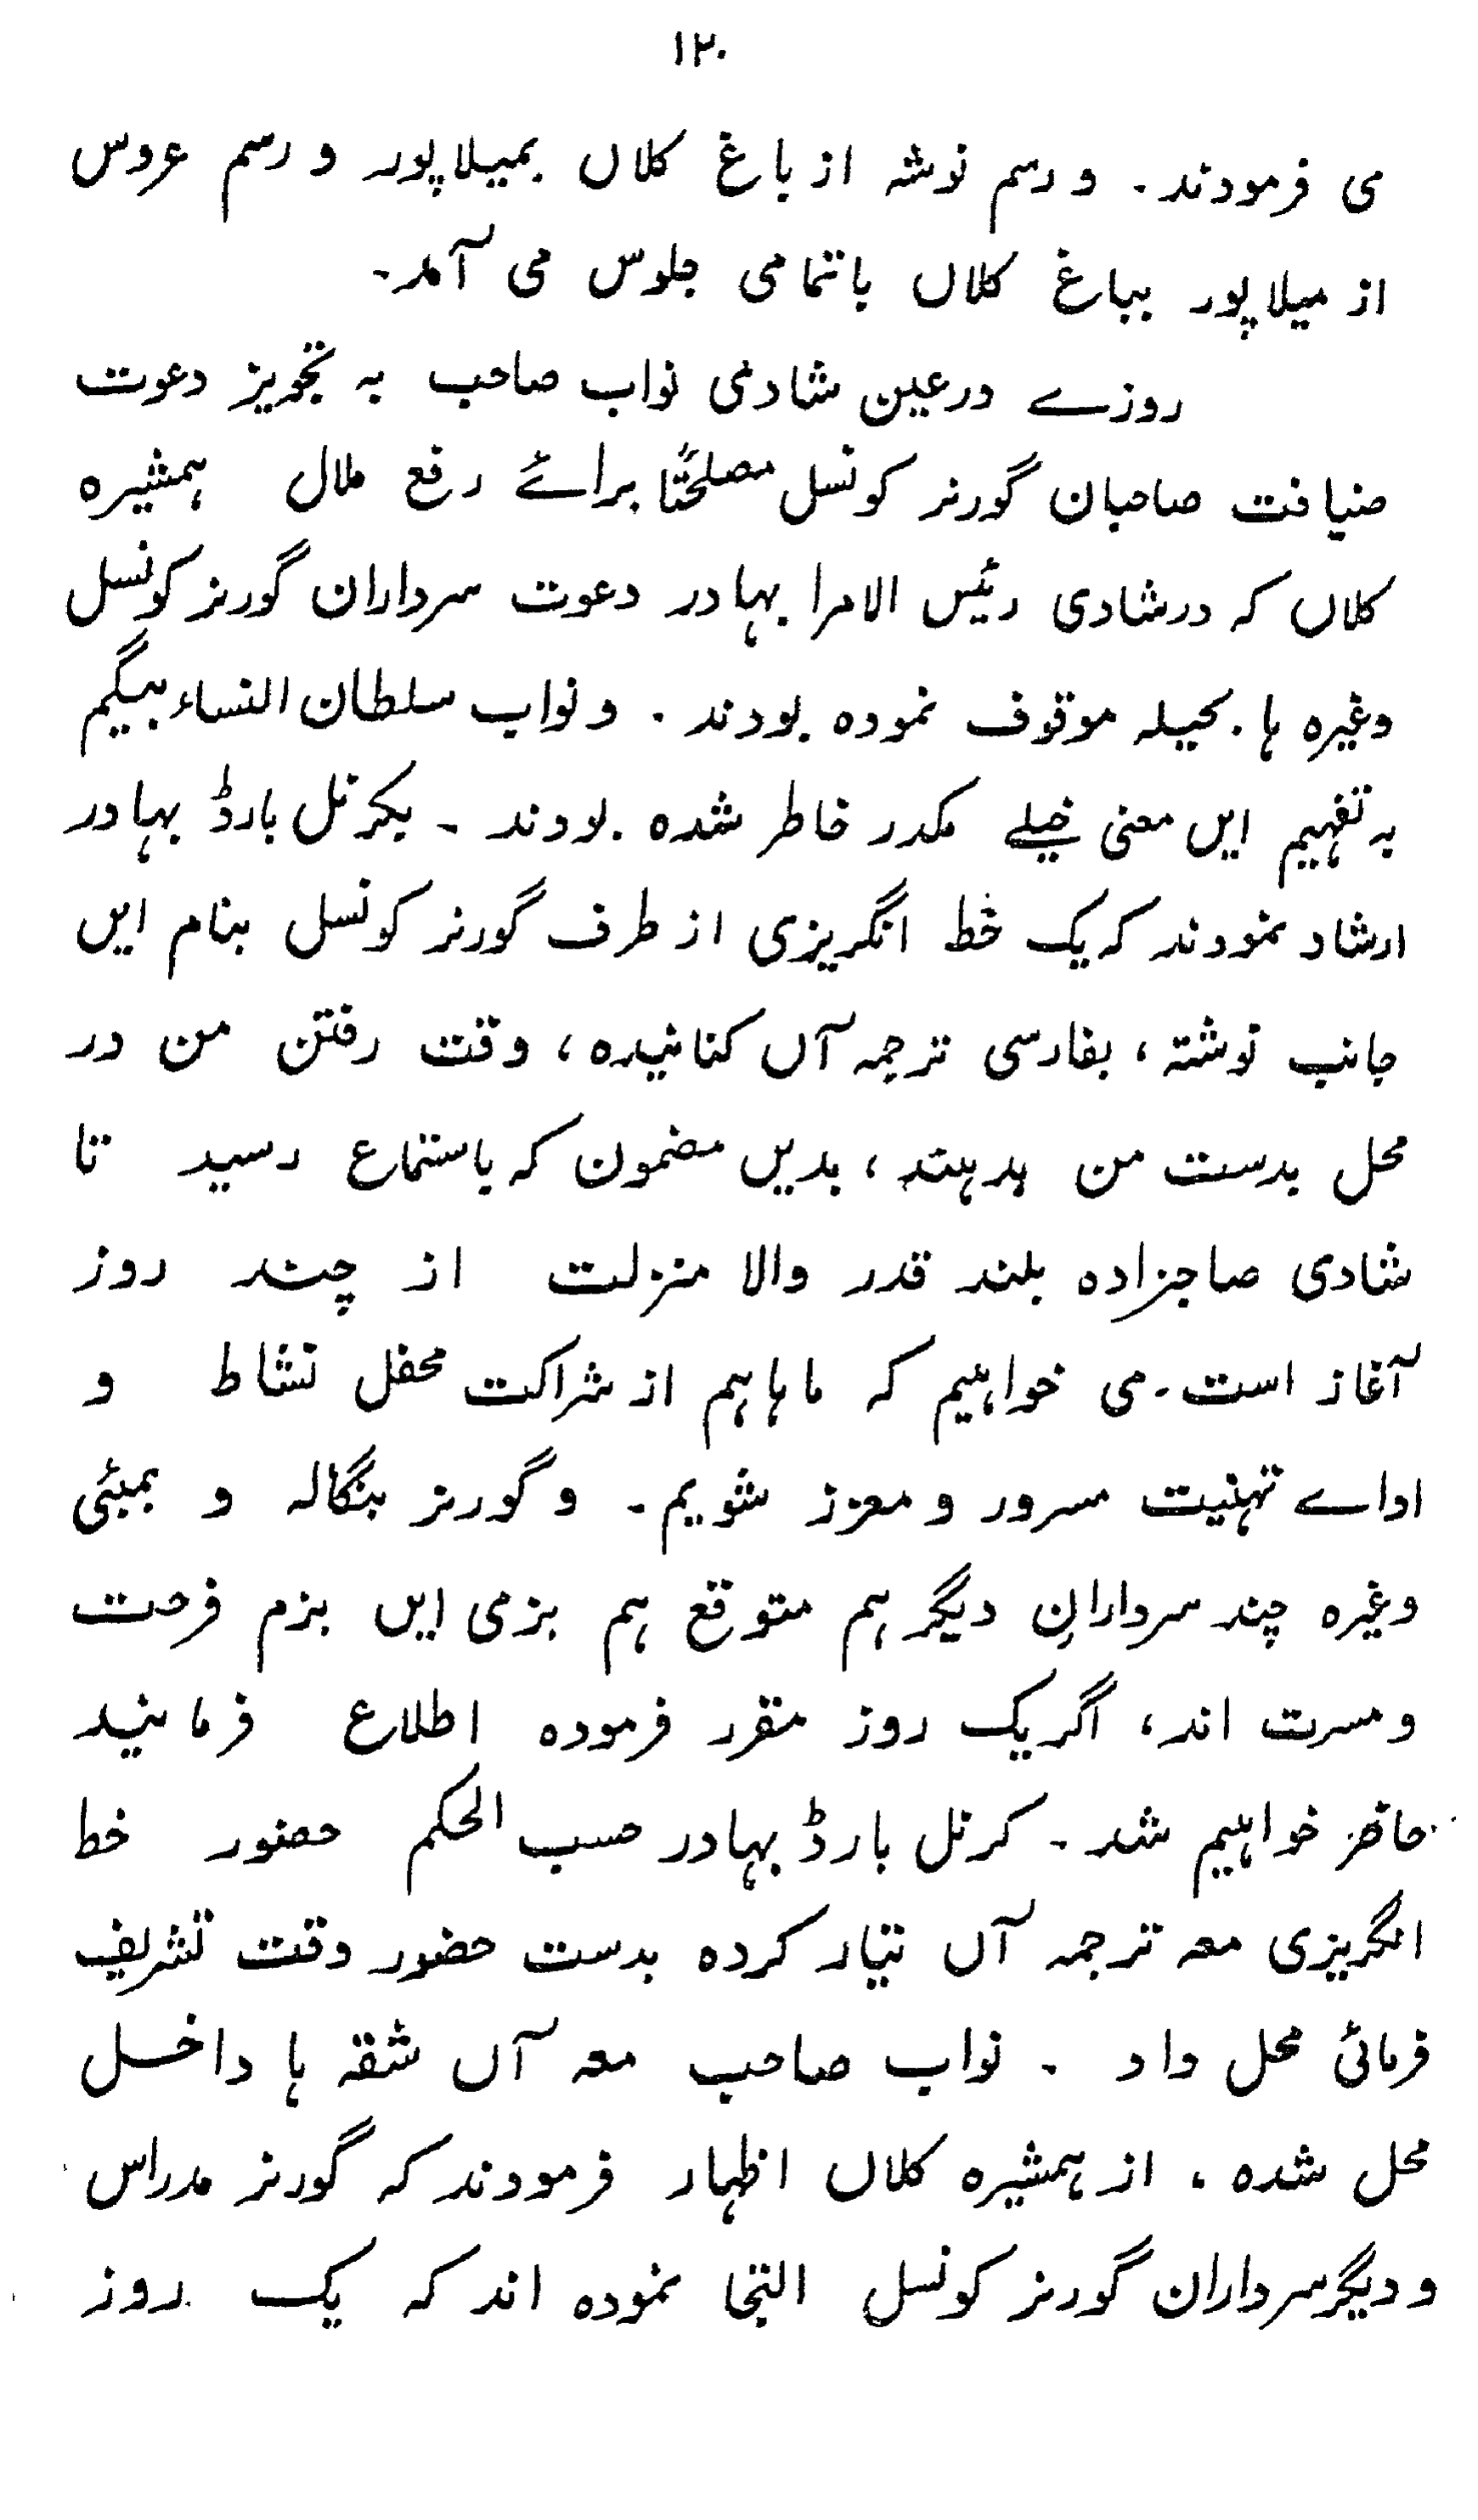 ۱۲۰
می فرمودند ۔ و رسم نوشہ از باغ کلاں بمیلاپور و رسم عروس
از میلاپور بباغ کلاں باتمامی جلوس می آمد ۔
روزے درعین شادیٔ نواب صاحب بہ تجویز دعوت
ضیافت صاحبان گورنر کونسل مصلحتًا برائے رفع ملال ہمشیرہ
کلاں کہ درشادی رئیس الامرا بہادر دعوت سرداران گورنر کونسل
وغیرہ ہا بحیلہ موقوف نمودہ بودند ۔ و نواب سلطان النساء بیگم
بہ تفہیم ایں معنی خیلے مکدر خاطر شدہ بودند ۔ بکرنل بارڈ بہادر
ارشاد نمودند کہ یک خط انگریزی از طرف گورنر کونسل بنام ایں
جانب نوشتہ ، بفارسی ترجمہ آں کنانیدہ ، وقت رفتن من در
محل بدست من بدہند ، بدیں مضمون کہ باستماع رسید تا
شادی صاجزادہ بلند قدر والا منزلت از چند روز
آغاز است ۔ می خواہیم کہ ماہاہم از شراکت محفل نشاط و
اداے تہنیت مسرور و معزز شویم ۔ و گورنر بنگالہ و بمبئی
وغیرہ چند سردارانِ دیگر ہم متوقع ہم بزمی ایں بزم فرحت
و مسرت اند ، اگر یک روز مقرر فرمودہ اطلاع فرمایند
حاضر خواہیم شد ۔ کرنل بارڈ بہادر حسب الحکم حضور خط
انگریزی معہ ترجمہ آں تیار کردہ بدست حضور وقت تشریف
فرمائی محل داد ۔ نواب صاحب معہ آں شقہ ہا داخل
محل شدہ ، از ہمشیرہ کلاں اظہار فرمودند کہ گورنر مدراس
و دیگر سرداران گورنر کونسل التجا نمودہ اند کہ یک روز